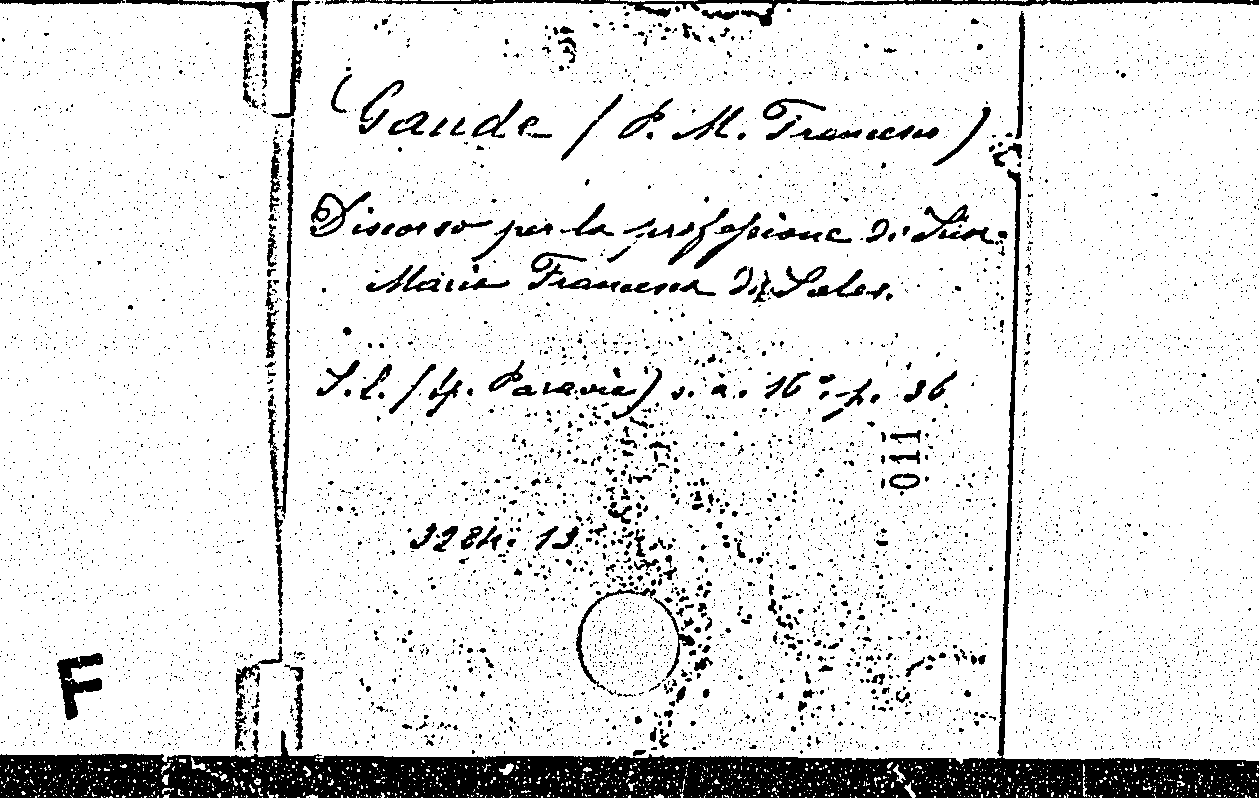 Gaude (P. M. Francesco)
Discorso per la professione di Suor
Maria Francesca di Sales.
S. l. (tip. Paravia) s. a. 16°. p. 36
3284. 13
011
F